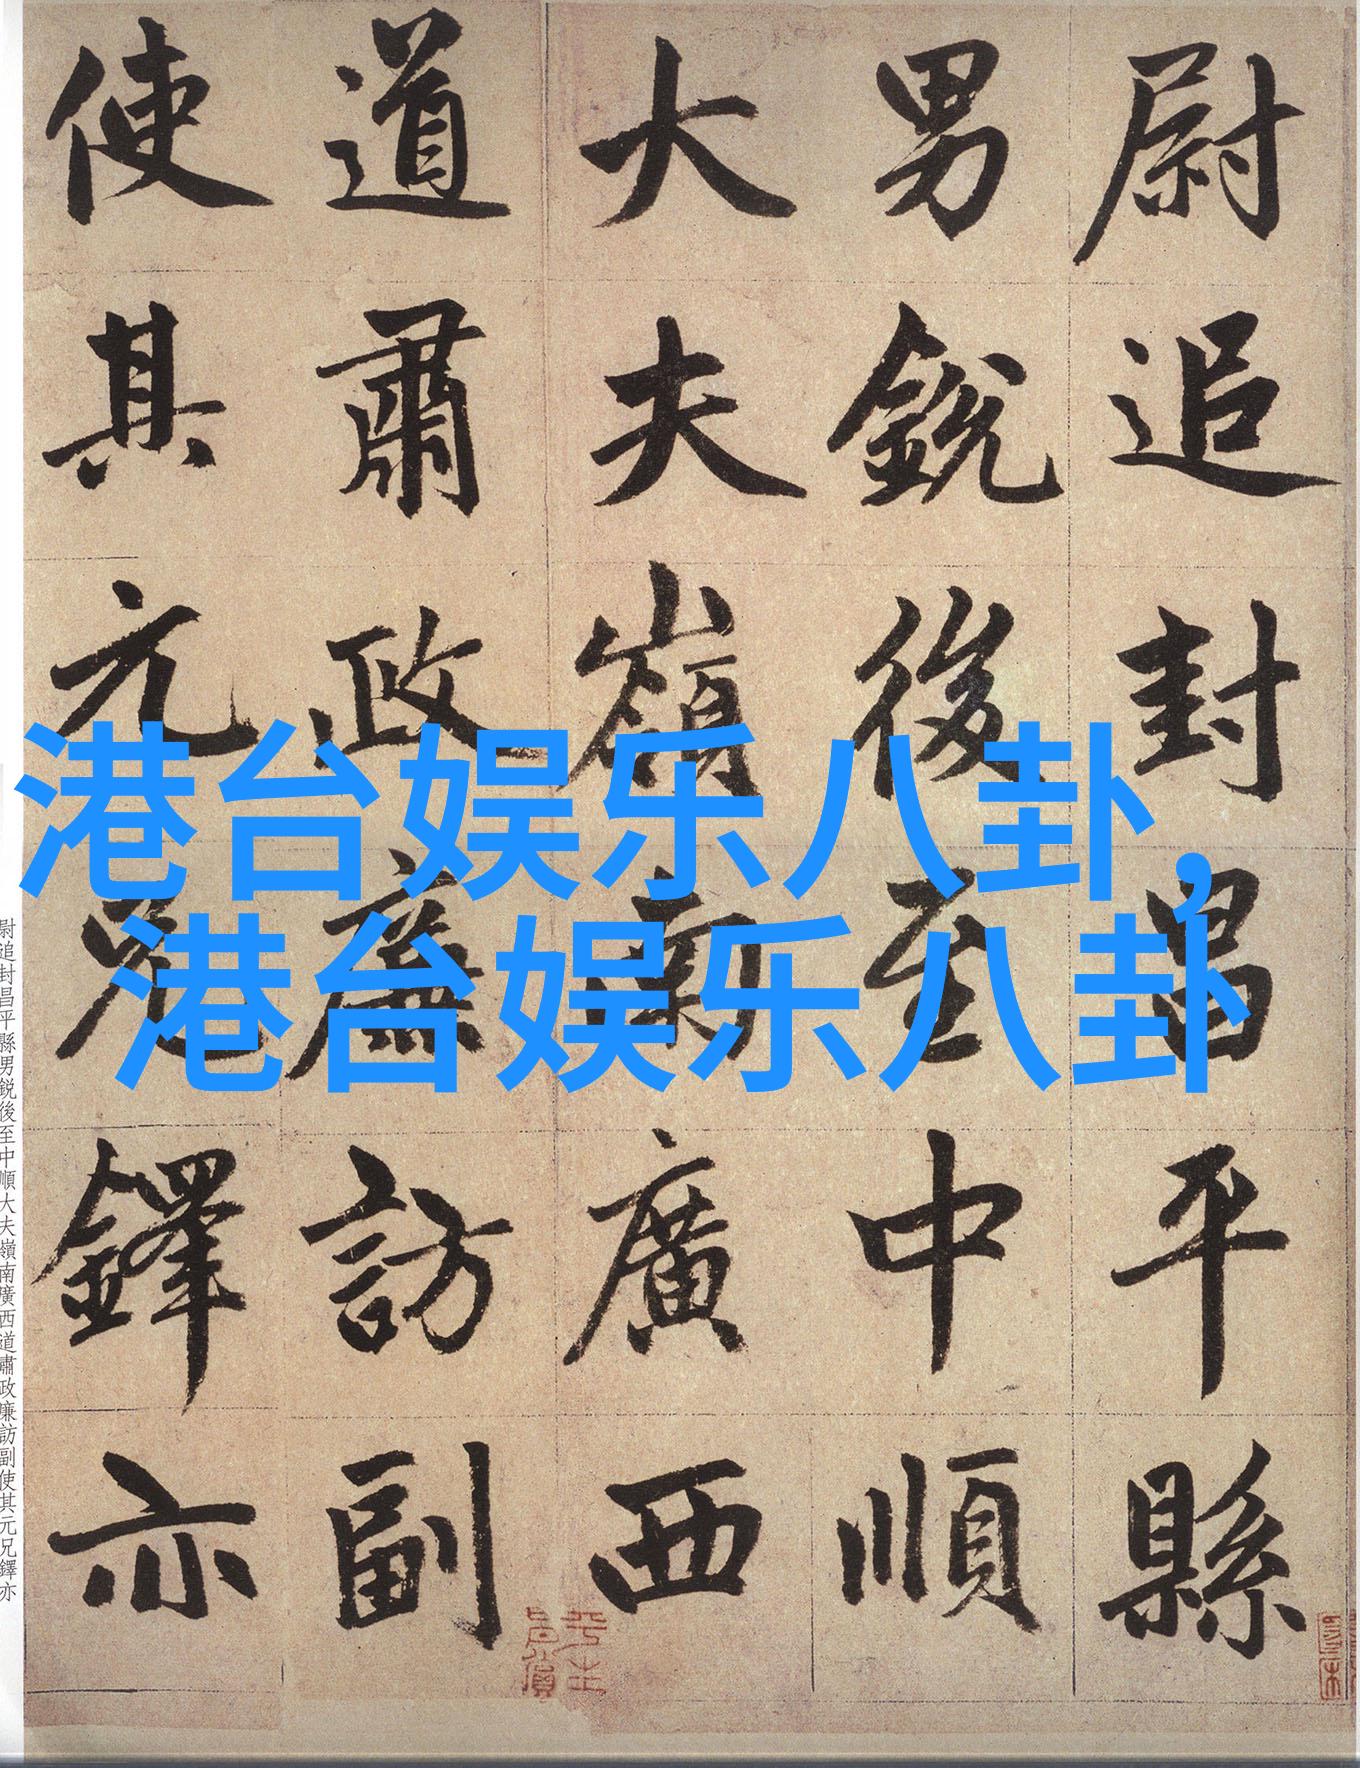 尉追封昌平縣
男銳後至中順
大夫嶺南廣西
道肅政廉訪副
使其元兄鐸亦
港台娱乐八卦,
港台娱乐八卦
尉追封昌平縣男鋭後至中順大夫嶺南廣西道肅政廉訪副使其元兄鐸亦